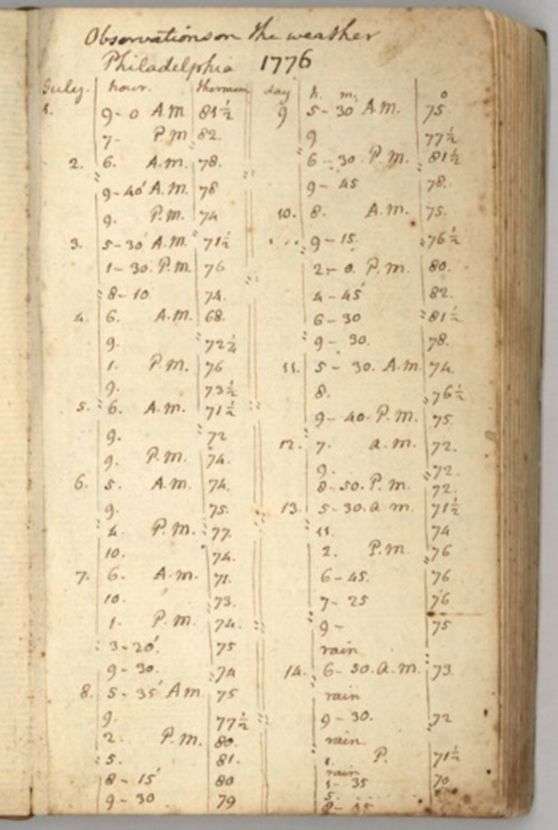 Observations on the weather
Philadelphia 1776
July. hour. thermom
1. 9-0 A.M 81½
7- P.M 82.
2. 6. A.M. 78.
9-40' A.M. 78
9. P.M. 74
3. 5-30' A.M. 71½
1-30. P.M. 76
8-10. 74.
4. 6. A.M. 68.
9. 72¼
1. P.M. 76
9. 73½
5. 6. A.M. 71½
9. 72
9. P.M. 74.
6. 5. A.M. 74.
9. 75.
4. P.M. 77.
10. 74.
7. 6. A.M. 71.
10. 73.
1. P.M. 74.
3-20'. 75
9-30. 74
8. 5-35' A.M 75
9. 77½
2. P.M. 80.
5. 81.
8-15' 80
9-30 79
day h. m. o
9 5-30 A.M. 75.
9 77½
6-30 P.M. 81½
9-45 78.
10. 8. A.M. 75.
9-15. 76½
2-0. P.M. 80.
4-45' 82.
6-30 81½
9-30. 78.
11. 5-30. A.M 74.
8. 76½
9-40. P.M. 75.
12. 7. a.m. 72.
9. 72.
8-50. P.M. 72.
13. 5-30. a m. 71½
11. 74
2. P.M. 76
6-45. 76
7-25 76
9- 75
rain
14. 6-30. a.m. 73.
rain
9-30. 72
rain
1. P. 71½
rain
1-35 70
5.